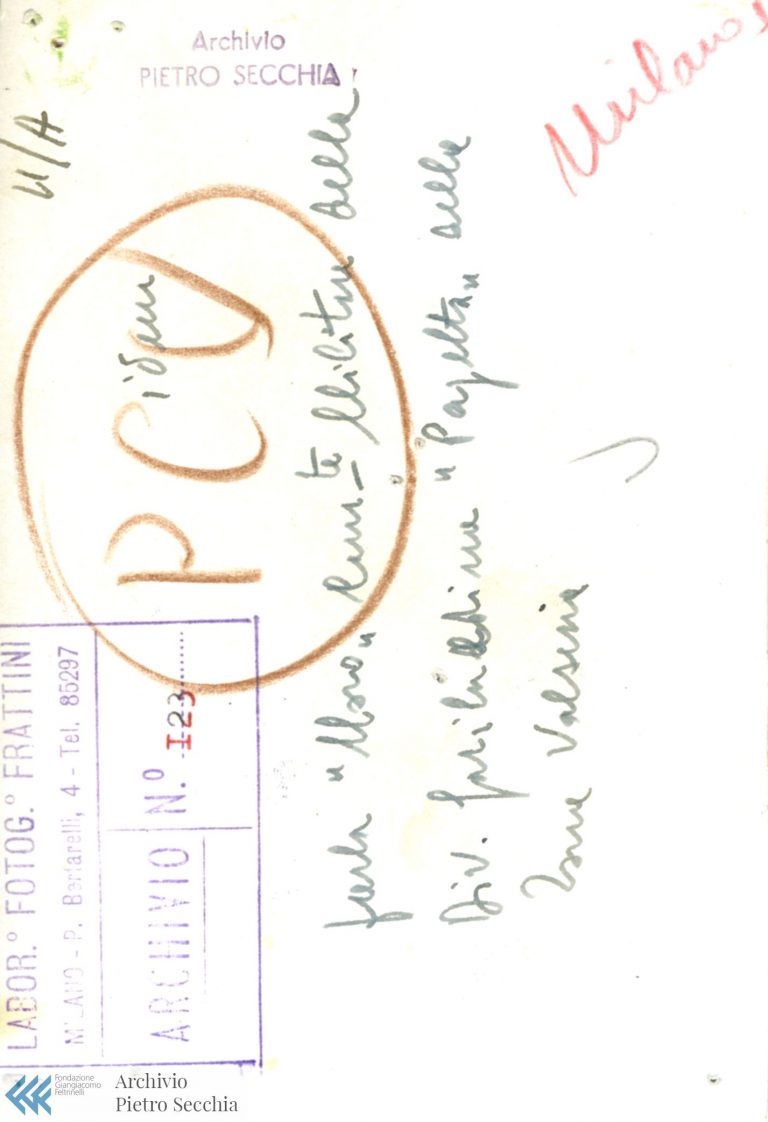 Archivio
PIETRO SECCHIA
Milano
U/A
idem
PCI
"Moro" Com.te Militare della
Div. garibaldina "Pajetta" della
Zona Valsesia
LABOR.º FOTOG.º FRATTINI
MILANO - P. Bertarelli, 4 - Tel. 85297
ARCHIVIO N.º 123
Fondazione
Giangiacomo
Feltrinelli
Archivio
Pietro Secchia